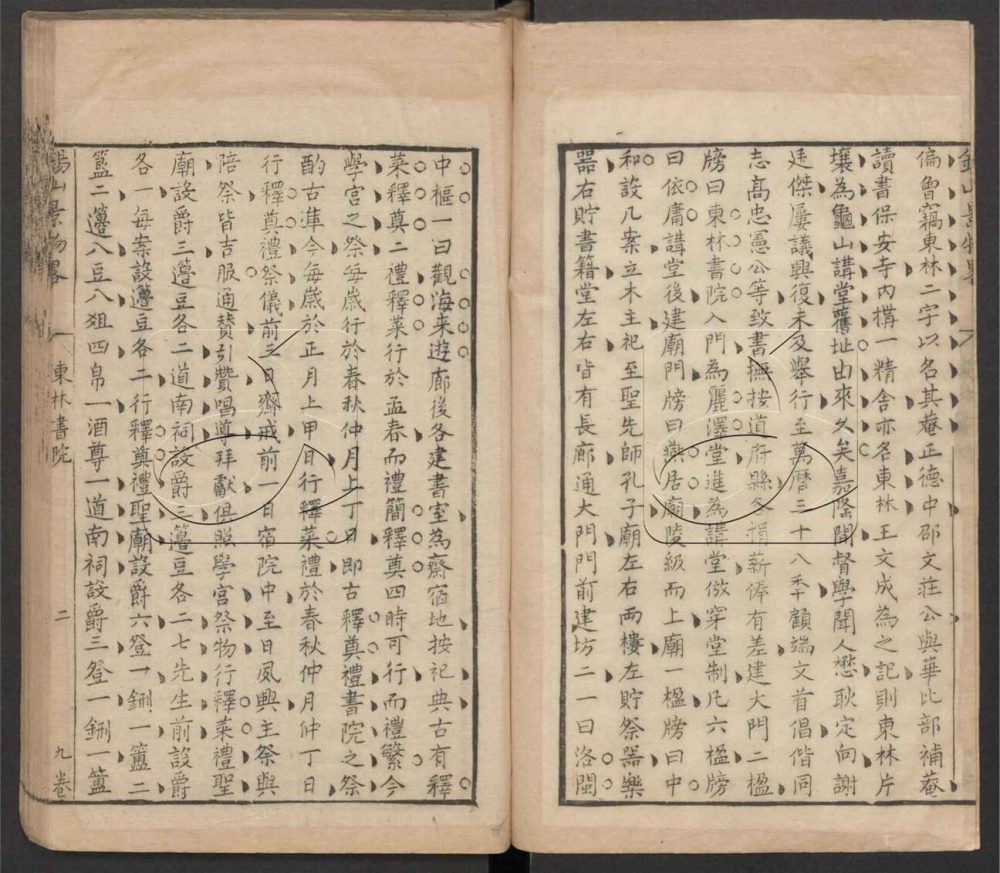 僧魯竊東林二字以名其菴正德中邵文莊公與華比部補菴
讀書保安寺內構一精舍亦名東林王文成為之記則東林片
壤為龜山講堂舊址由來久矣嘉隆間督學聞人懋耿定向謝
廷傑屢議興復未及舉行至萬曆三十八年顧端文首倡偕同
志高忠憲公等致書撫按道府縣各捐薪俸有差建大門二楹
牓曰東林書院入門為麗澤堂進為講堂倣穿堂制凡六楹牓
曰依庸講堂後建廟門牓曰燕居廟陵級而上廟一楹牓曰中
和設几案立木主祀至聖先師孔子廟左右兩樓左貯祭器樂
器右貯書籍堂左右皆有長廊通大門門前建坊二一曰洛閩
中樞一曰觀海來遊廊後各建書室為齋宿地按祀典古有釋
菜釋奠二禮釋菜行於孟春而禮簡釋奠四時可行而禮繁今
學宮之祭每歲行於春秋仲月上丁日即古釋奠禮書院之祭
酌古準今每歲於正月上甲日行釋菜禮於春秋仲月仲丁日
行釋奠禮祭儀前三日齋戒前一日宿院中至日夙興主祭與
陪祭皆吉服通贊引贊唱導拜獻俱照學宮祭物行釋菜禮聖
廟設爵三籩豆各二道南祠設爵三籩豆各二七先生前設爵
各一每案設籩豆各二行釋奠禮聖廟設爵六登一鉶一簠二
簋二籩八豆八俎四帛一酒尊一道南祠設爵三登一鉶一簠
錫山景物畧
東林書院
二
九卷